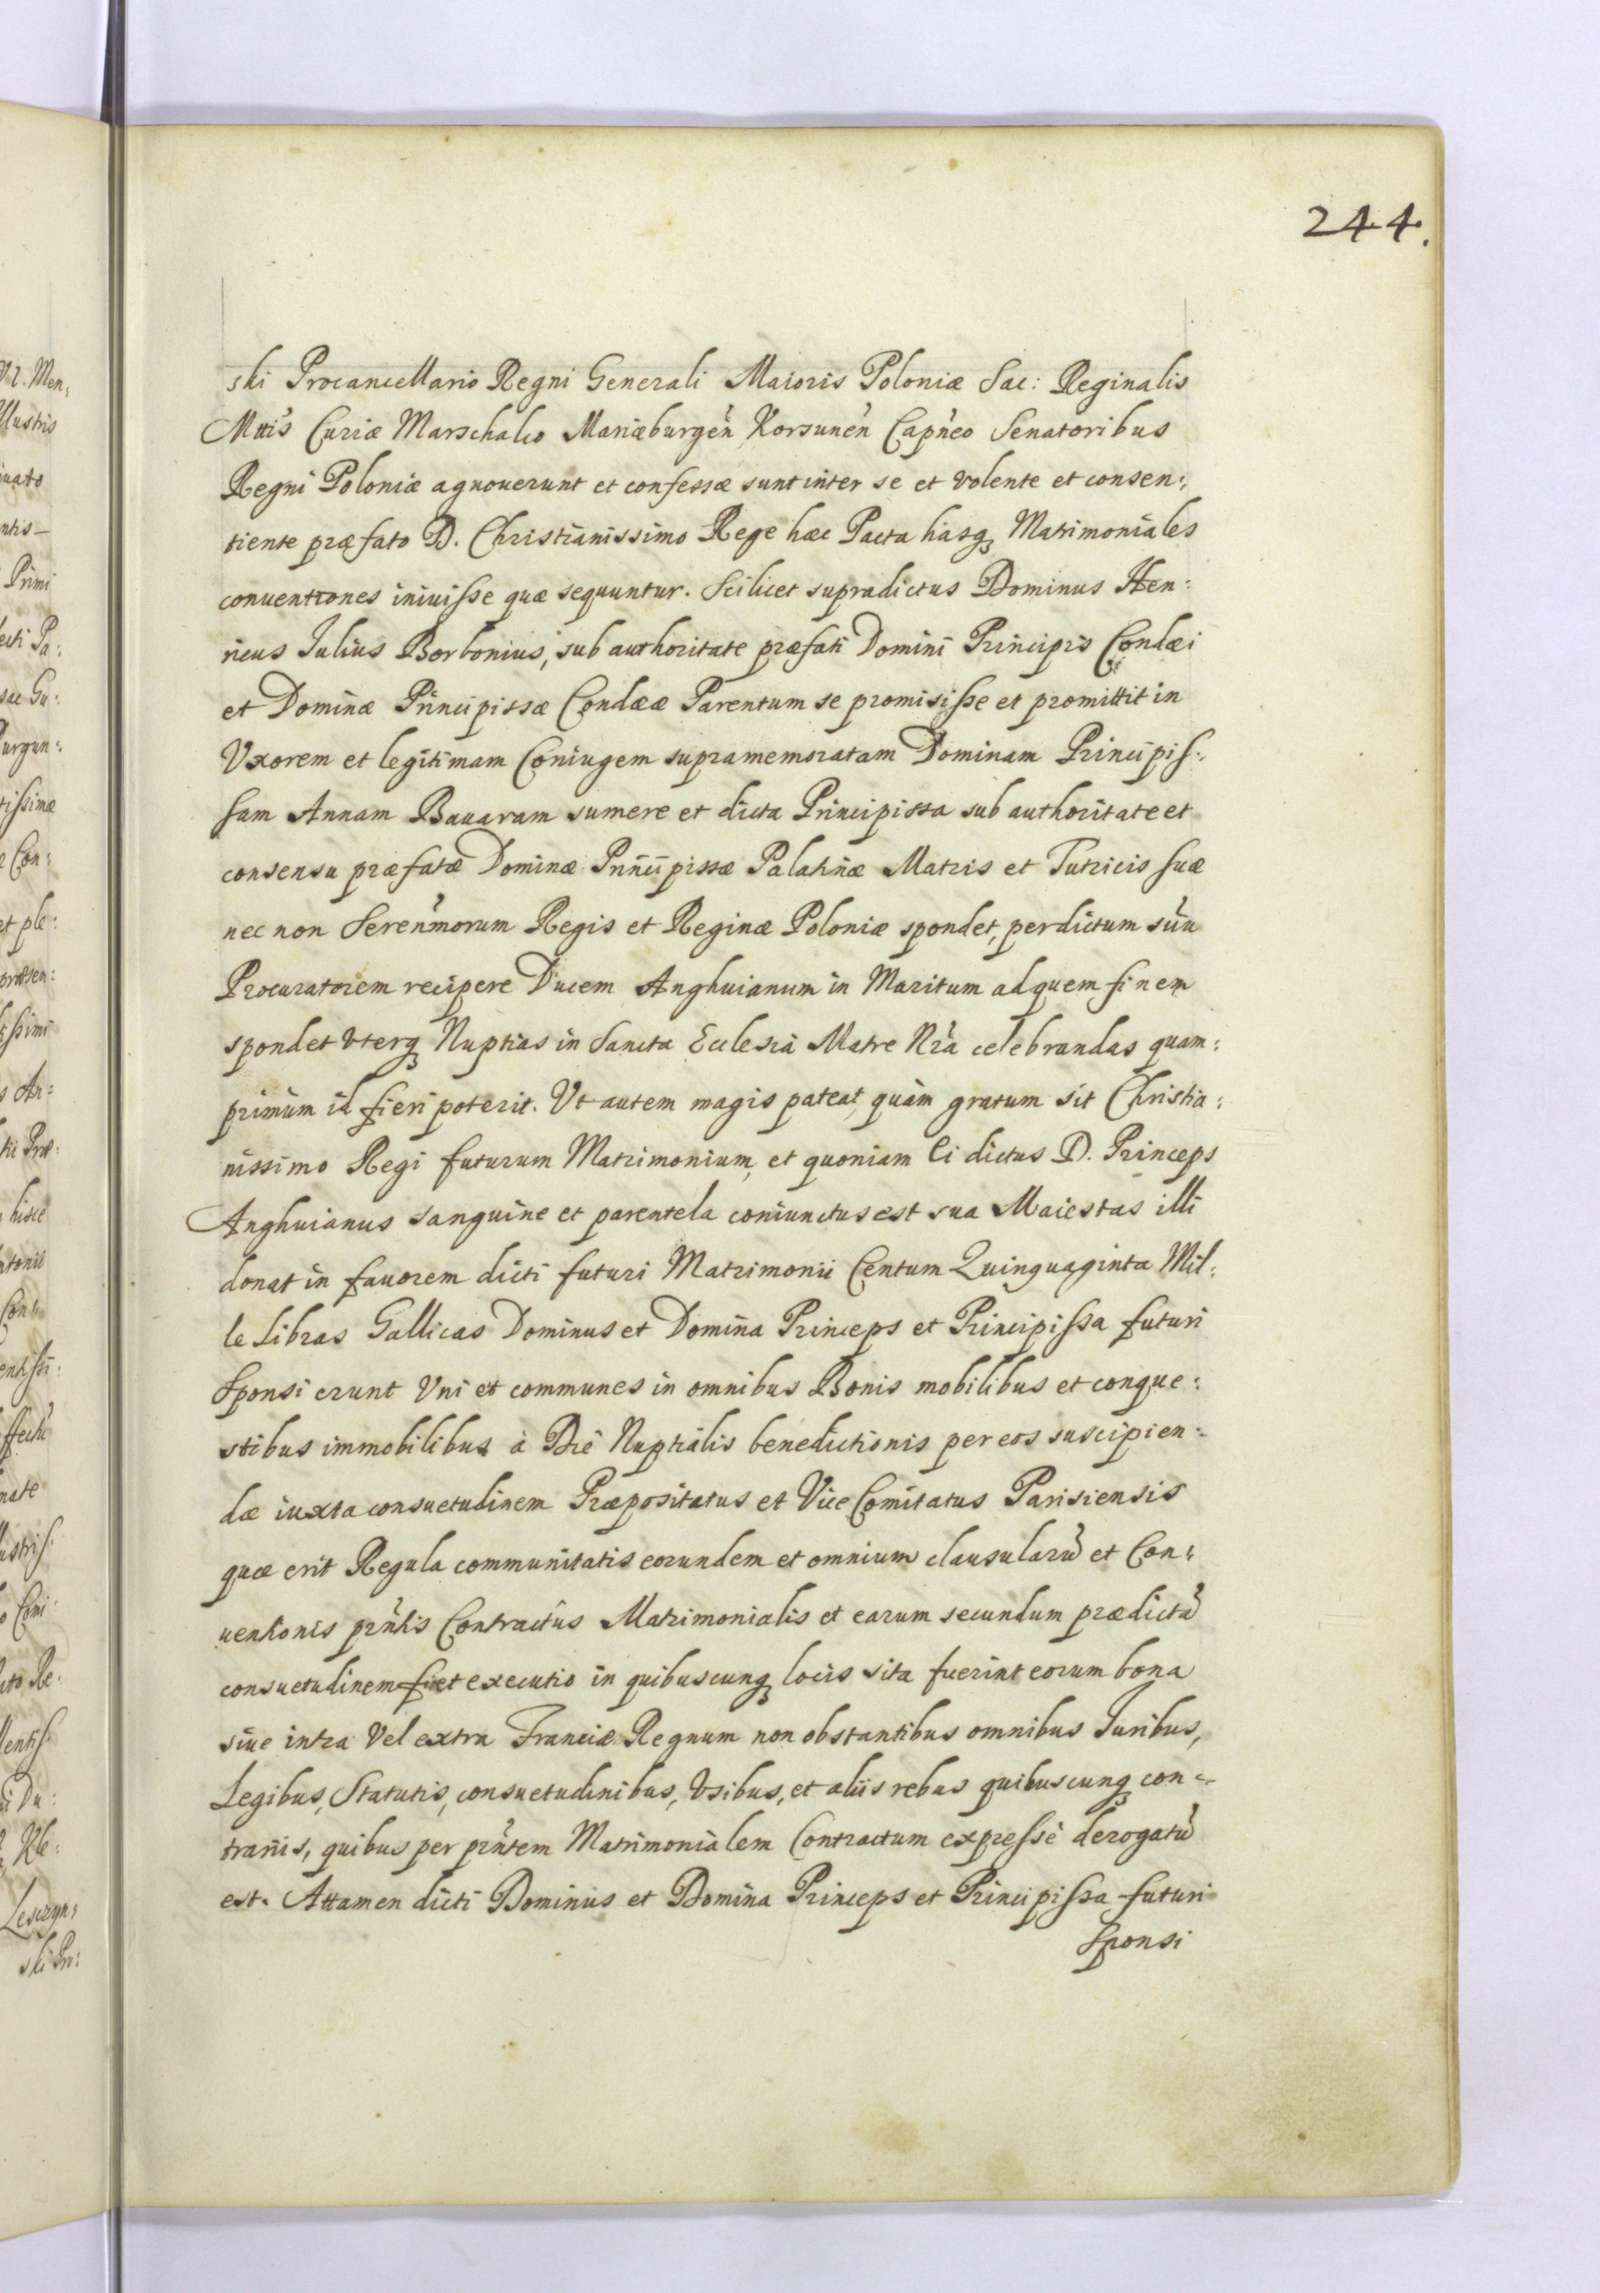 244.
ski Procancellario Regni Generali Maioris Poloniæ Sac: Reginalis
Mttis Curiæ Marschalco Mariæburgeñ Korsuneñ Capñeo Senatoribus
Regni Poloniæ agnouerunt et confessæ sunt inter se et volente et consen:
tiente præfato D. Christianissimo Rege hæc Pacta hasq₃ Matrimoniales
conuentiones iniuisse quæ sequuntur. Scilicet supradictus Dominus Hen:
ricus Julius Borbonius, sub authoritate præfati Domini Principis Condæi
et Dominæ Principissæ Condææ Parentum se promisisse et promittit in
Vxorem et legitimam Coniugem supramemoratam Dominam Principis:
sam Annam Bauaram sumere et dicta Principissa sub authoritate et
consensu præfatæ Dominæ Principissæ Palatinæ Matris et Tutricis suæ
nec non Sereñmorum Regis et Reginæ Poloniæ spondet, per dictum suũ
Procuratorem recipere Ducem Anghuianum in Maritum ad quem finem
spondet vterq₃ Nuptias in Sancta Ecclesia Matre Nr̃a celebrandas quam:
primùm id fieri poterit. Vt autem magis pateat quàm gratum sit Christia:
nissimo Regi futurum Matrimonium, et quoniam Ei dictus D. Princeps
Anghuianus sanguine et parentela coniunctus est sua Maiestas illi
donat in fauorem dicti futuri Matrimonii Centum Quinquaginta Mil:
le Libras Gallicas Dominus et Domina Princeps et Principissa futuri
Sponsi erunt Vni et communes in omnibus Bonis mobilibus et conque:
stibus immobilibus à Die Nuptialis benedictionis per eos suscipien:
dæ iuxta consuetudinem Præpositatus et Vice Comitatus Parisiensis
quæ erit Regula communitatis eorundem et omnium clausularũ et Con:
uentionis pr̃ntis Contractûs Matrimonialis et earum secundum prædictã
consuetudinem fiet executio in quibuscunq₃ locis sita fuerint eorum bona
siue intra Vel extra Franciæ Regnum non obstantibus omnibus Juribus,
Legibus, Statutis, consuetudinibus, Vsibus, et aliis rebus quibuscunq₃ con:
trariis, quibus per pr̃ntem Matrimonialem Contractum expressè derogatũ
est. Attamen dicti Dominus et Domina Princeps et Principissa futuri
Sponsi